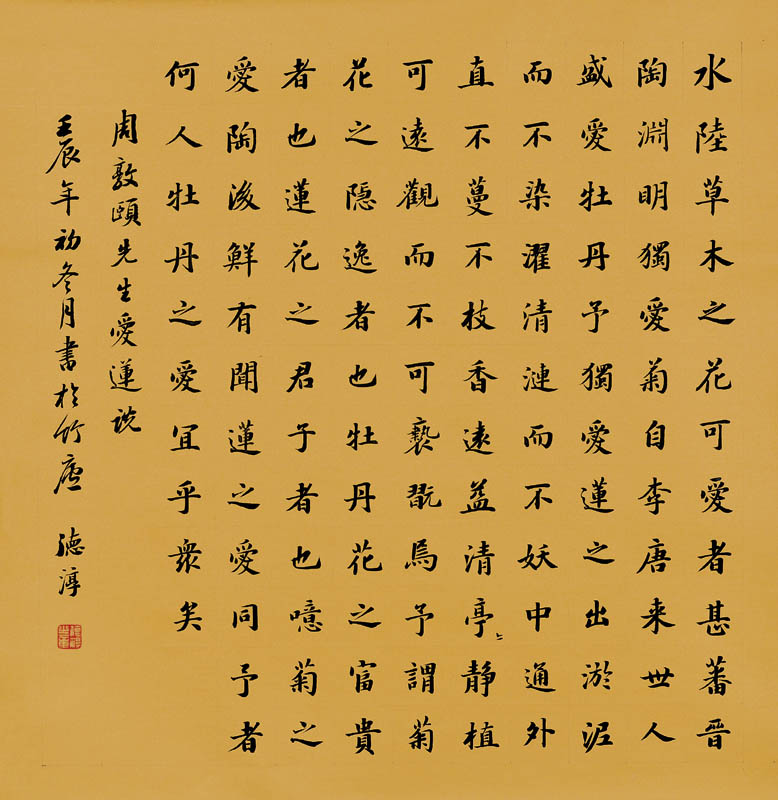 水陸草木之花可愛者甚蕃晋
陶淵明獨愛菊自李唐来世人
盛愛牡丹予獨愛蓮之出淤泥
而不染濯清漣而不妖中通外
直不蔓不枝香遠益清亭〻静植
可遠觀而不可褻翫焉予謂菊
花之隠逸者也牡丹花之富貴
者也蓮花之君子者也噫菊之
愛陶後鮮有聞蓮之愛同予者
何人牡丹之愛宜乎衆矣
周敦頤先生愛蓮説
壬辰年初冬月書於竹廬 德淳